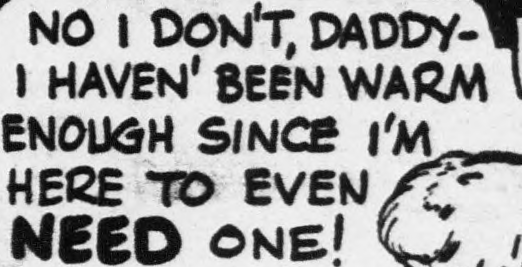 NO I DON'T, DADDY-
I HAVEN' BEEN WARM
ENOUGH SINCE I'M
HERE TO EVEN
NEED ONE!